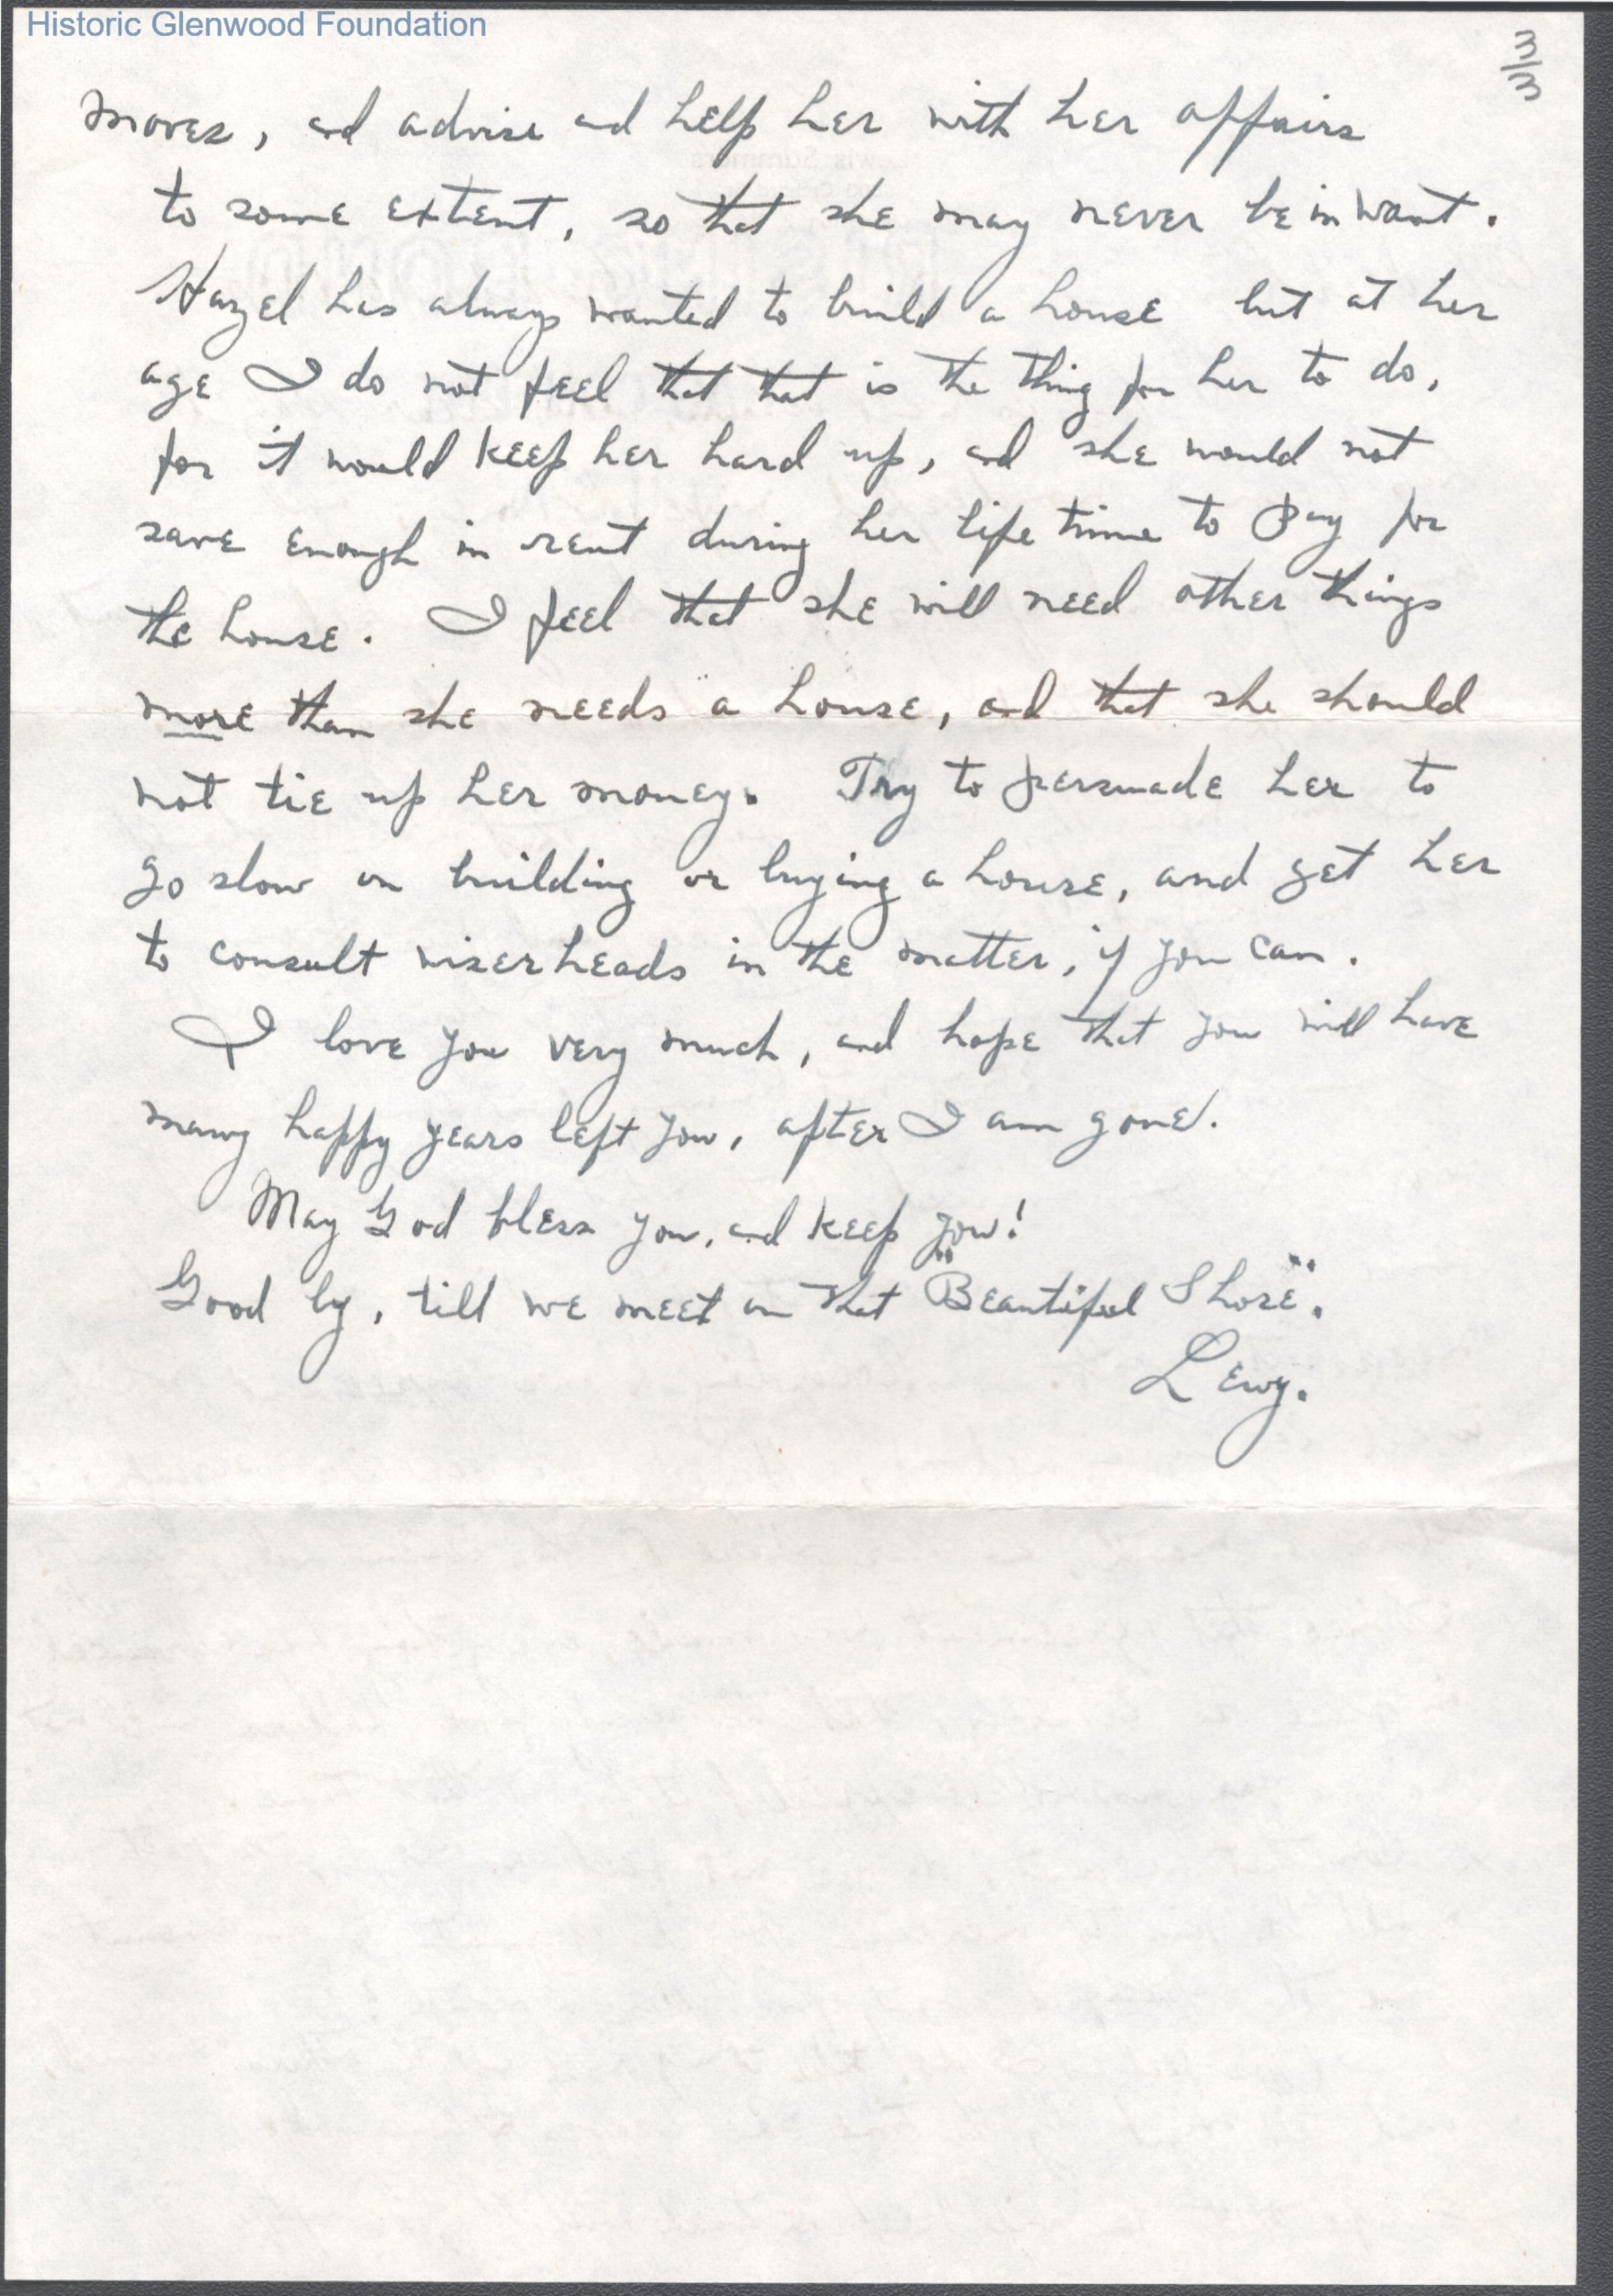 Historic Glenwood Foundation
3/3
moves, and advise and help her with her affairs
to some extent, so that she may never be in want.
Hazel has always wanted to build a house but at her
age I do not feel that that is the thing for her to do,
for it would keep her hard up, and she would not
save enough in rent during her life time to Pay for
the house. I feel that she will need other things
more than she needs a house, and that she should
not tie up her money. Try to persuade her to
go slow on building or buying a house, and get her
to consult wiser heads in the matter, if you can.
I love you very much, and hope that you will have
many happy years left you, after I am gone.
May God bless you, and keep you!
Good by, till we meet on that "Beautiful Shore".
Lewy.